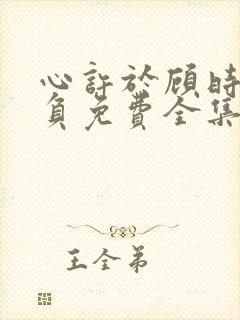 心許於顧時
負免費全集
王全弟